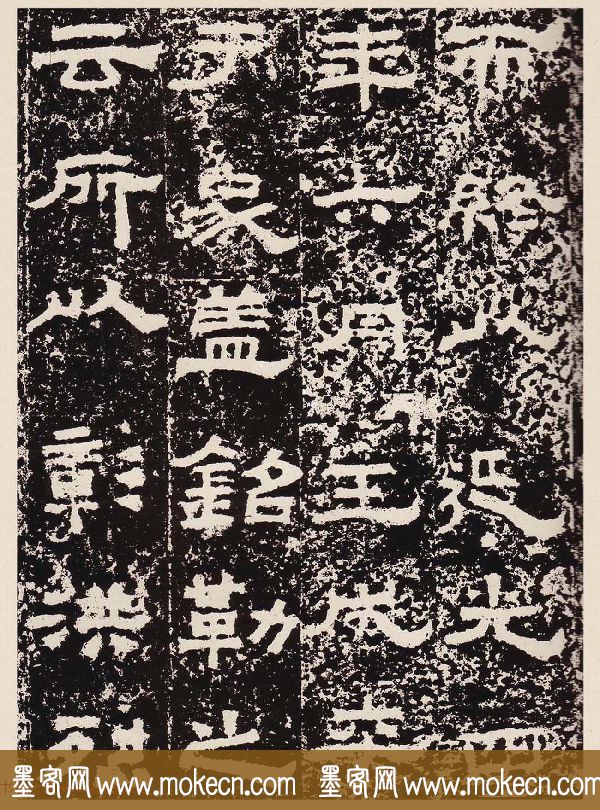 而終以延光四
年六壬戌
于是盖銘勒之
云所以彰洪烈
墨客网 www.mokecn.com 墨客网 www.mokecn.com